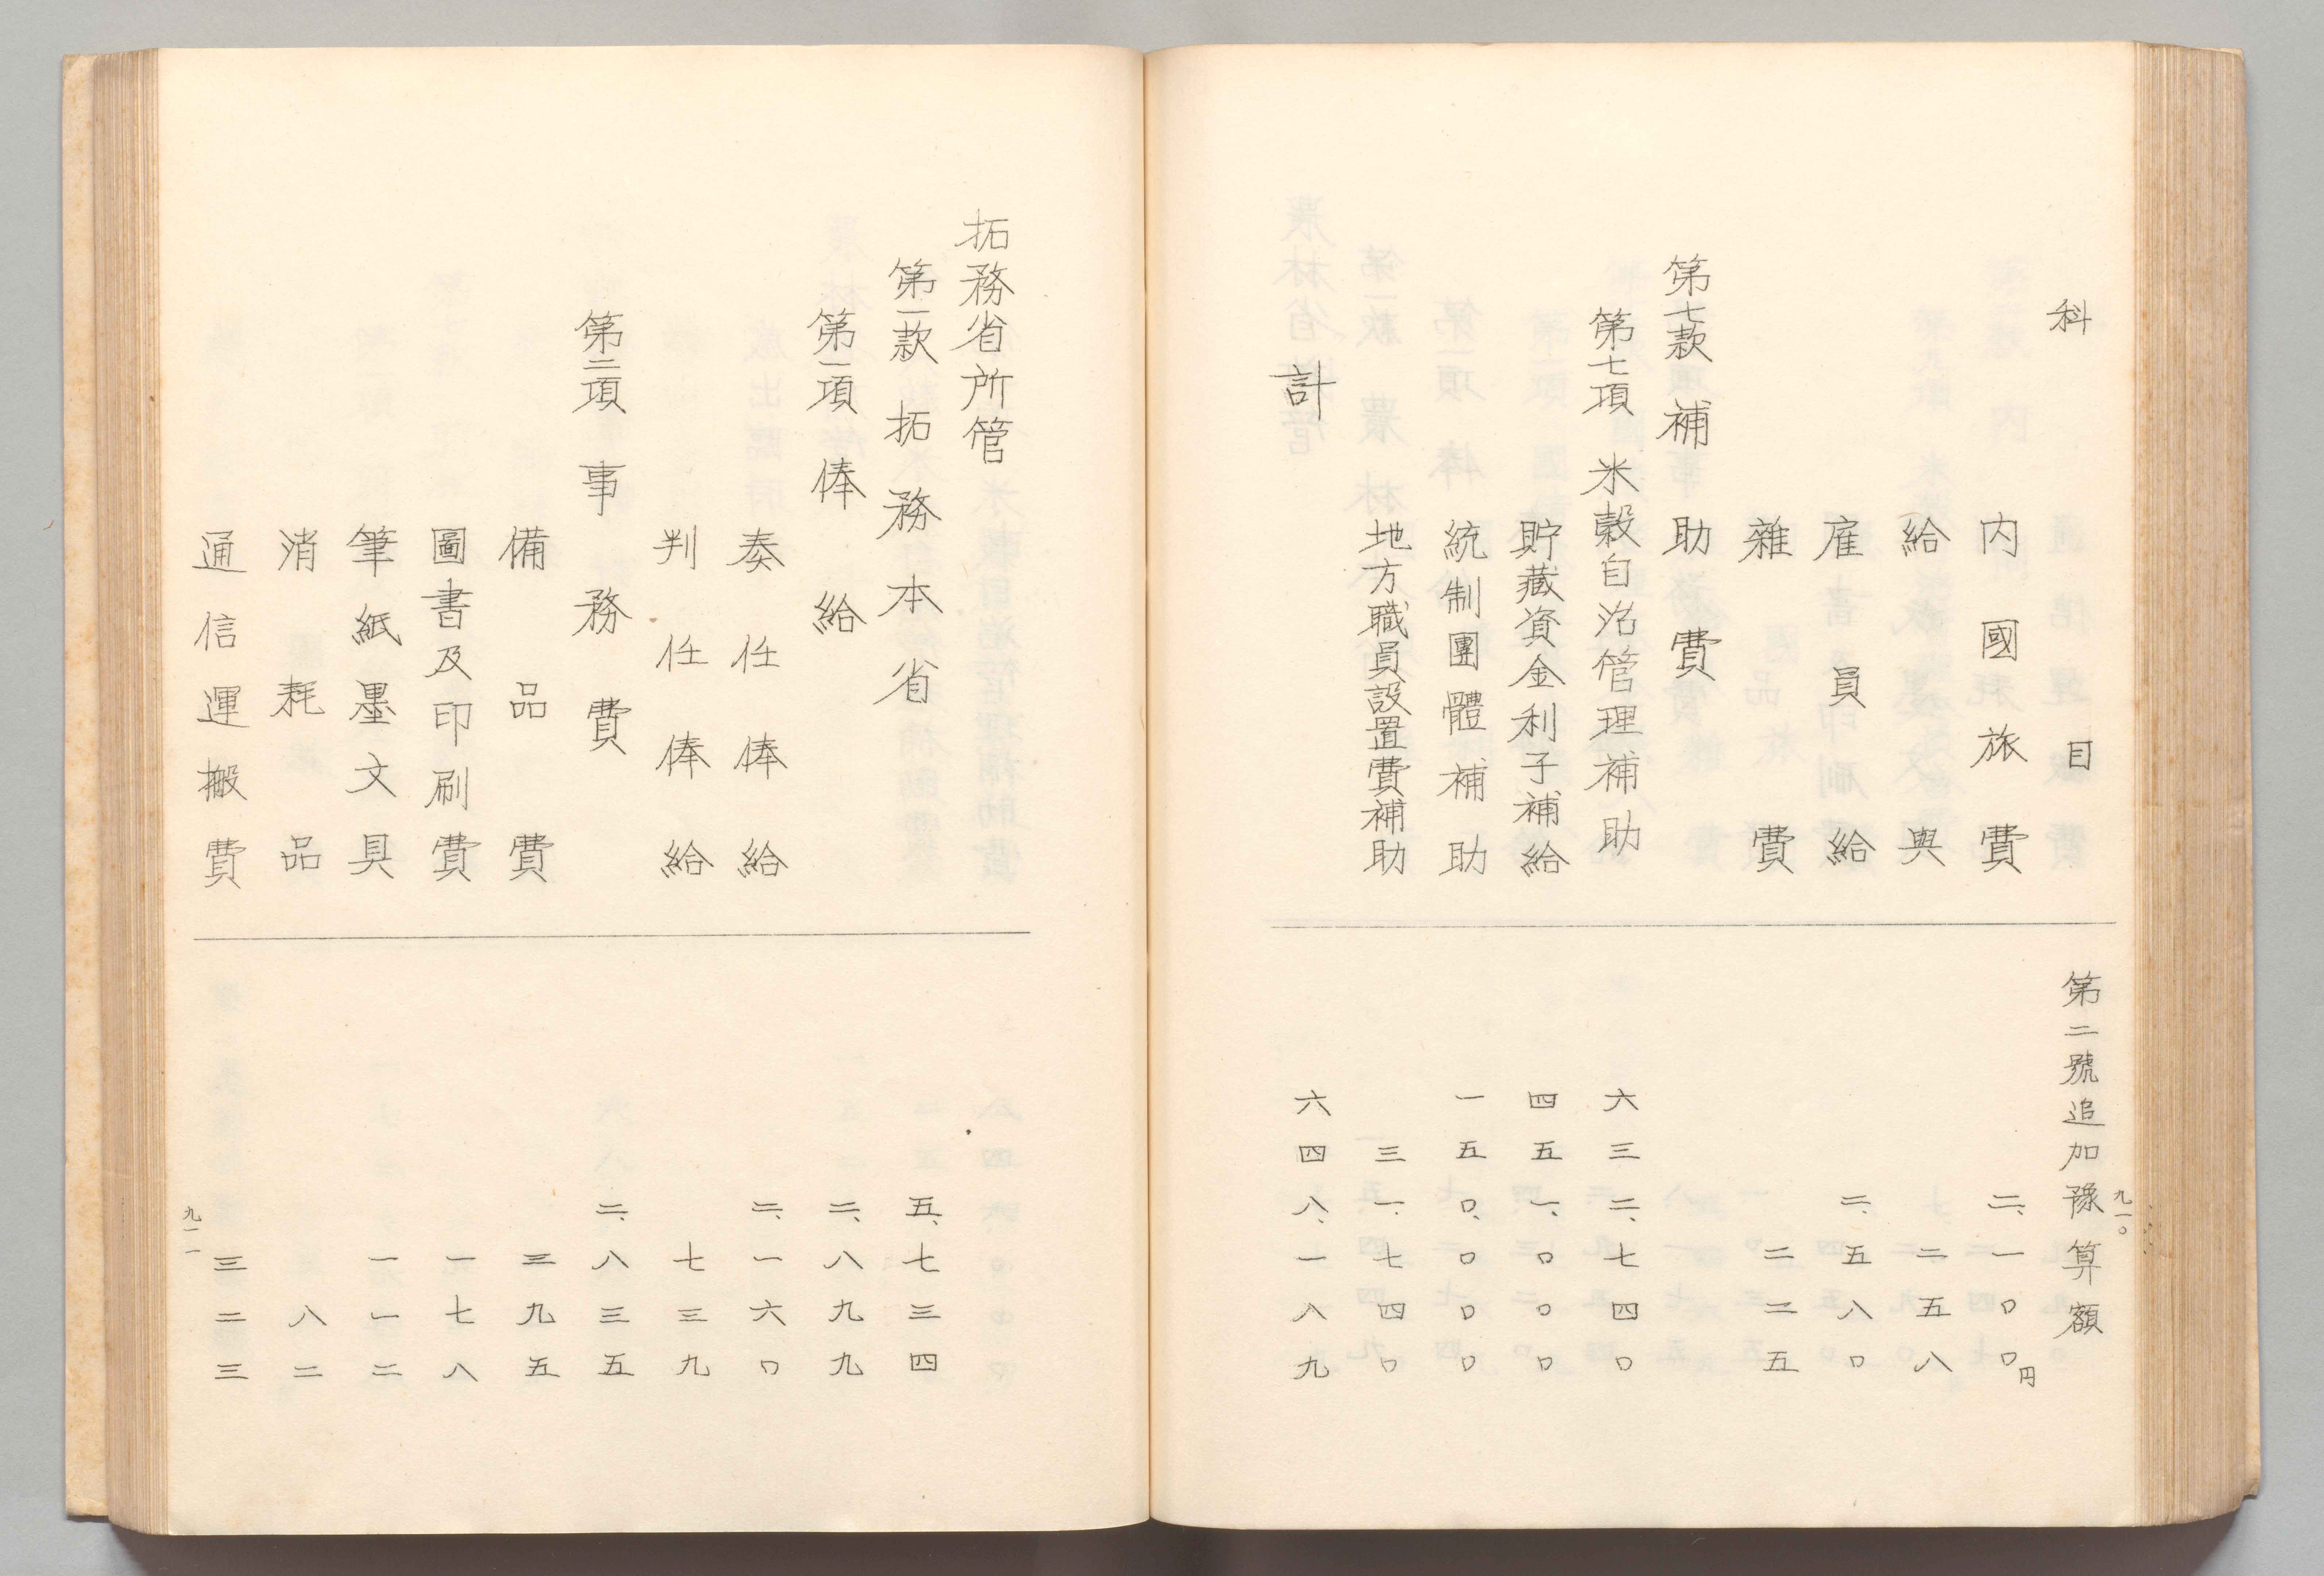 九一〇
科目 第二號追加豫算額
内國旅費 二、一〇〇円
給與 二五八
雇員給 二、五八〇
雜費 二二五
第七款補助費
第七項米穀自治管理補助 六三二、七四〇
貯藏資金利子補給 四五一、〇〇〇
統制團體補助 一五〇、〇〇〇
地方職員設置費補助 三一、七四〇
計 六四八、一八九
拓務省所管
第一款拓務本省 五、七三四
第一項俸給 二、八九九
奏任俸給 二、一六〇
判任俸給 七三九
第二項事務費 二、八三五
備品費 三九五
圖書及印刷費 一七八
筆紙墨文具 一一二
消耗品 八二
通信運搬費 三二三
九一一